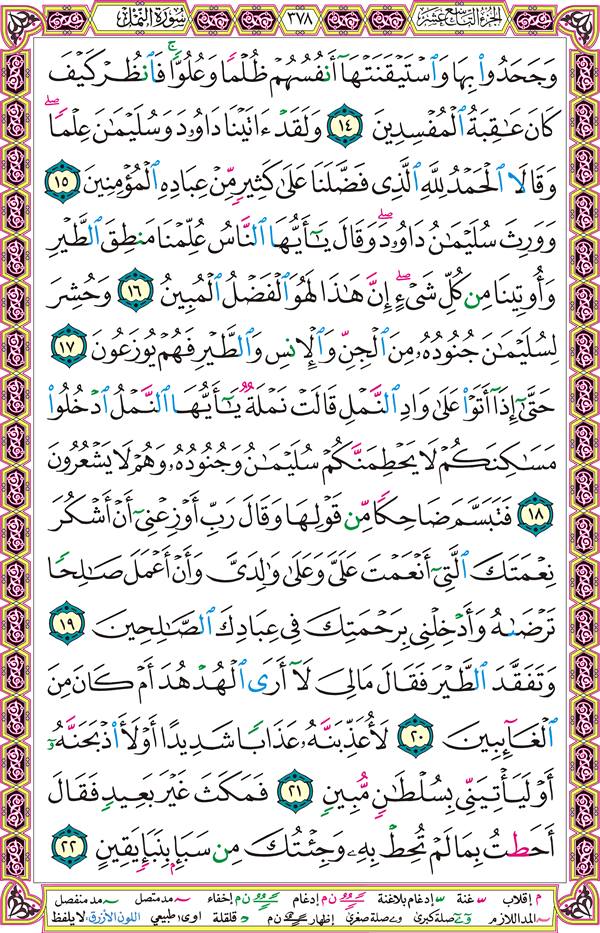 الجزء التاسع عشر ٣٧٨ سورة النمل
وَجَحَدُوا۟ بِهَا وَٱسْتَيْقَنَتْهَآ أَنفُسُهُمْ ظُلْمًا وَعُلُوًّا ۚ فَٱنظُرْ كَيْفَ
كَانَ عَـٰقِبَةُ ٱلْمُفْسِدِينَ ١٤ وَلَقَدْ ءَاتَيْنَا دَاوُۥدَ وَسُلَيْمَـٰنَ عِلْمًا ۖ
وَقَالَا ٱلْحَمْدُ لِلَّهِ ٱلَّذِى فَضَّلَنَا عَلَىٰ كَثِيرٍ مِّنْ عِبَادِهِ ٱلْمُؤْمِنِينَ ١٥
وَوَرِثَ سُلَيْمَـٰنُ دَاوُۥدَ ۖ وَقَالَ يَـٰٓأَيُّهَا ٱلنَّاسُ عُلِّمْنَا مَنطِقَ ٱلطَّيْرِ
وَأُوتِينَا مِن كُلِّ شَىْءٍ ۖ إِنَّ هَـٰذَا لَهُوَ ٱلْفَضْلُ ٱلْمُبِينُ ١٦ وَحُشِرَ
لِسُلَيْمَـٰنَ جُنُودُهُۥ مِنَ ٱلْجِنِّ وَٱلْإِنسِ وَٱلطَّيْرِ فَهُمْ يُوزَعُونَ ١٧
حَتَّىٰٓ إِذَآ أَتَوْا۟ عَلَىٰ وَادِ ٱلنَّمْلِ قَالَتْ نَمْلَةٌ يَـٰٓأَيُّهَا ٱلنَّمْلُ ٱدْخُلُوا۟
مَسَـٰكِنَكُمْ لَا يَحْطِمَنَّكُمْ سُلَيْمَـٰنُ وَجُنُودُهُۥ وَهُمْ لَا يَشْعُرُونَ
١٨ فَتَبَسَّمَ ضَاحِكًا مِّن قَوْلِهَا وَقَالَ رَبِّ أَوْزِعْنِىٓ أَنْ أَشْكُرَ
نِعْمَتَكَ ٱلَّتِىٓ أَنْعَمْتَ عَلَىَّ وَعَلَىٰ وَٰلِدَىَّ وَأَنْ أَعْمَلَ صَـٰلِحًا
تَرْضَىٰهُ وَأَدْخِلْنِى بِرَحْمَتِكَ فِى عِبَادِكَ ٱلصَّـٰلِحِينَ ١٩
وَتَفَقَّدَ ٱلطَّيْرَ فَقَالَ مَالِىَ لَآ أَرَى ٱلْهُدْهُدَ أَمْ كَانَ مِنَ
ٱلْغَآئِبِينَ ٢٠ لَأُعَذِّبَنَّهُۥ عَذَابًا شَدِيدًا أَوْ لَأَا۟ذْبَحَنَّهُۥٓ
أَوْ لَيَأْتِيَنِّى بِسُلْطَـٰنٍ مُّبِينٍ ٢١ فَمَكَثَ غَيْرَ بَعِيدٍ فَقَالَ
أَحَطتُ بِمَا لَمْ تُحِطْ بِهِۦ وَجِئْتُكَ مِن سَبَإٍۭ بِنَبَإٍ يَقِينٍ ٢٢
م إقلاب غنة إدغام بلاغنة ن م إدغام ن م إخفاء مد متصل مد منفصل
المد اللازم صلة كبرى صلة صغرى إظهار ن م قلقلة اوى طبيعي اللون الأزرق: لا يلفظ